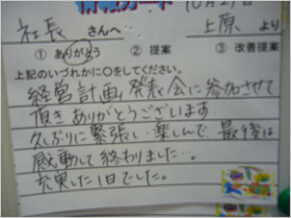 10月29日
社長 さんへ 上原 より
① ありがとう ② 提案 ③ 改善提案
上記のいづれかに○をしてください。
経営計画発表会に参加させて
頂きありがとうございます
久ぶりに緊張し、楽しんで 最後は
感動して終わりました…。
充実した1日でした。